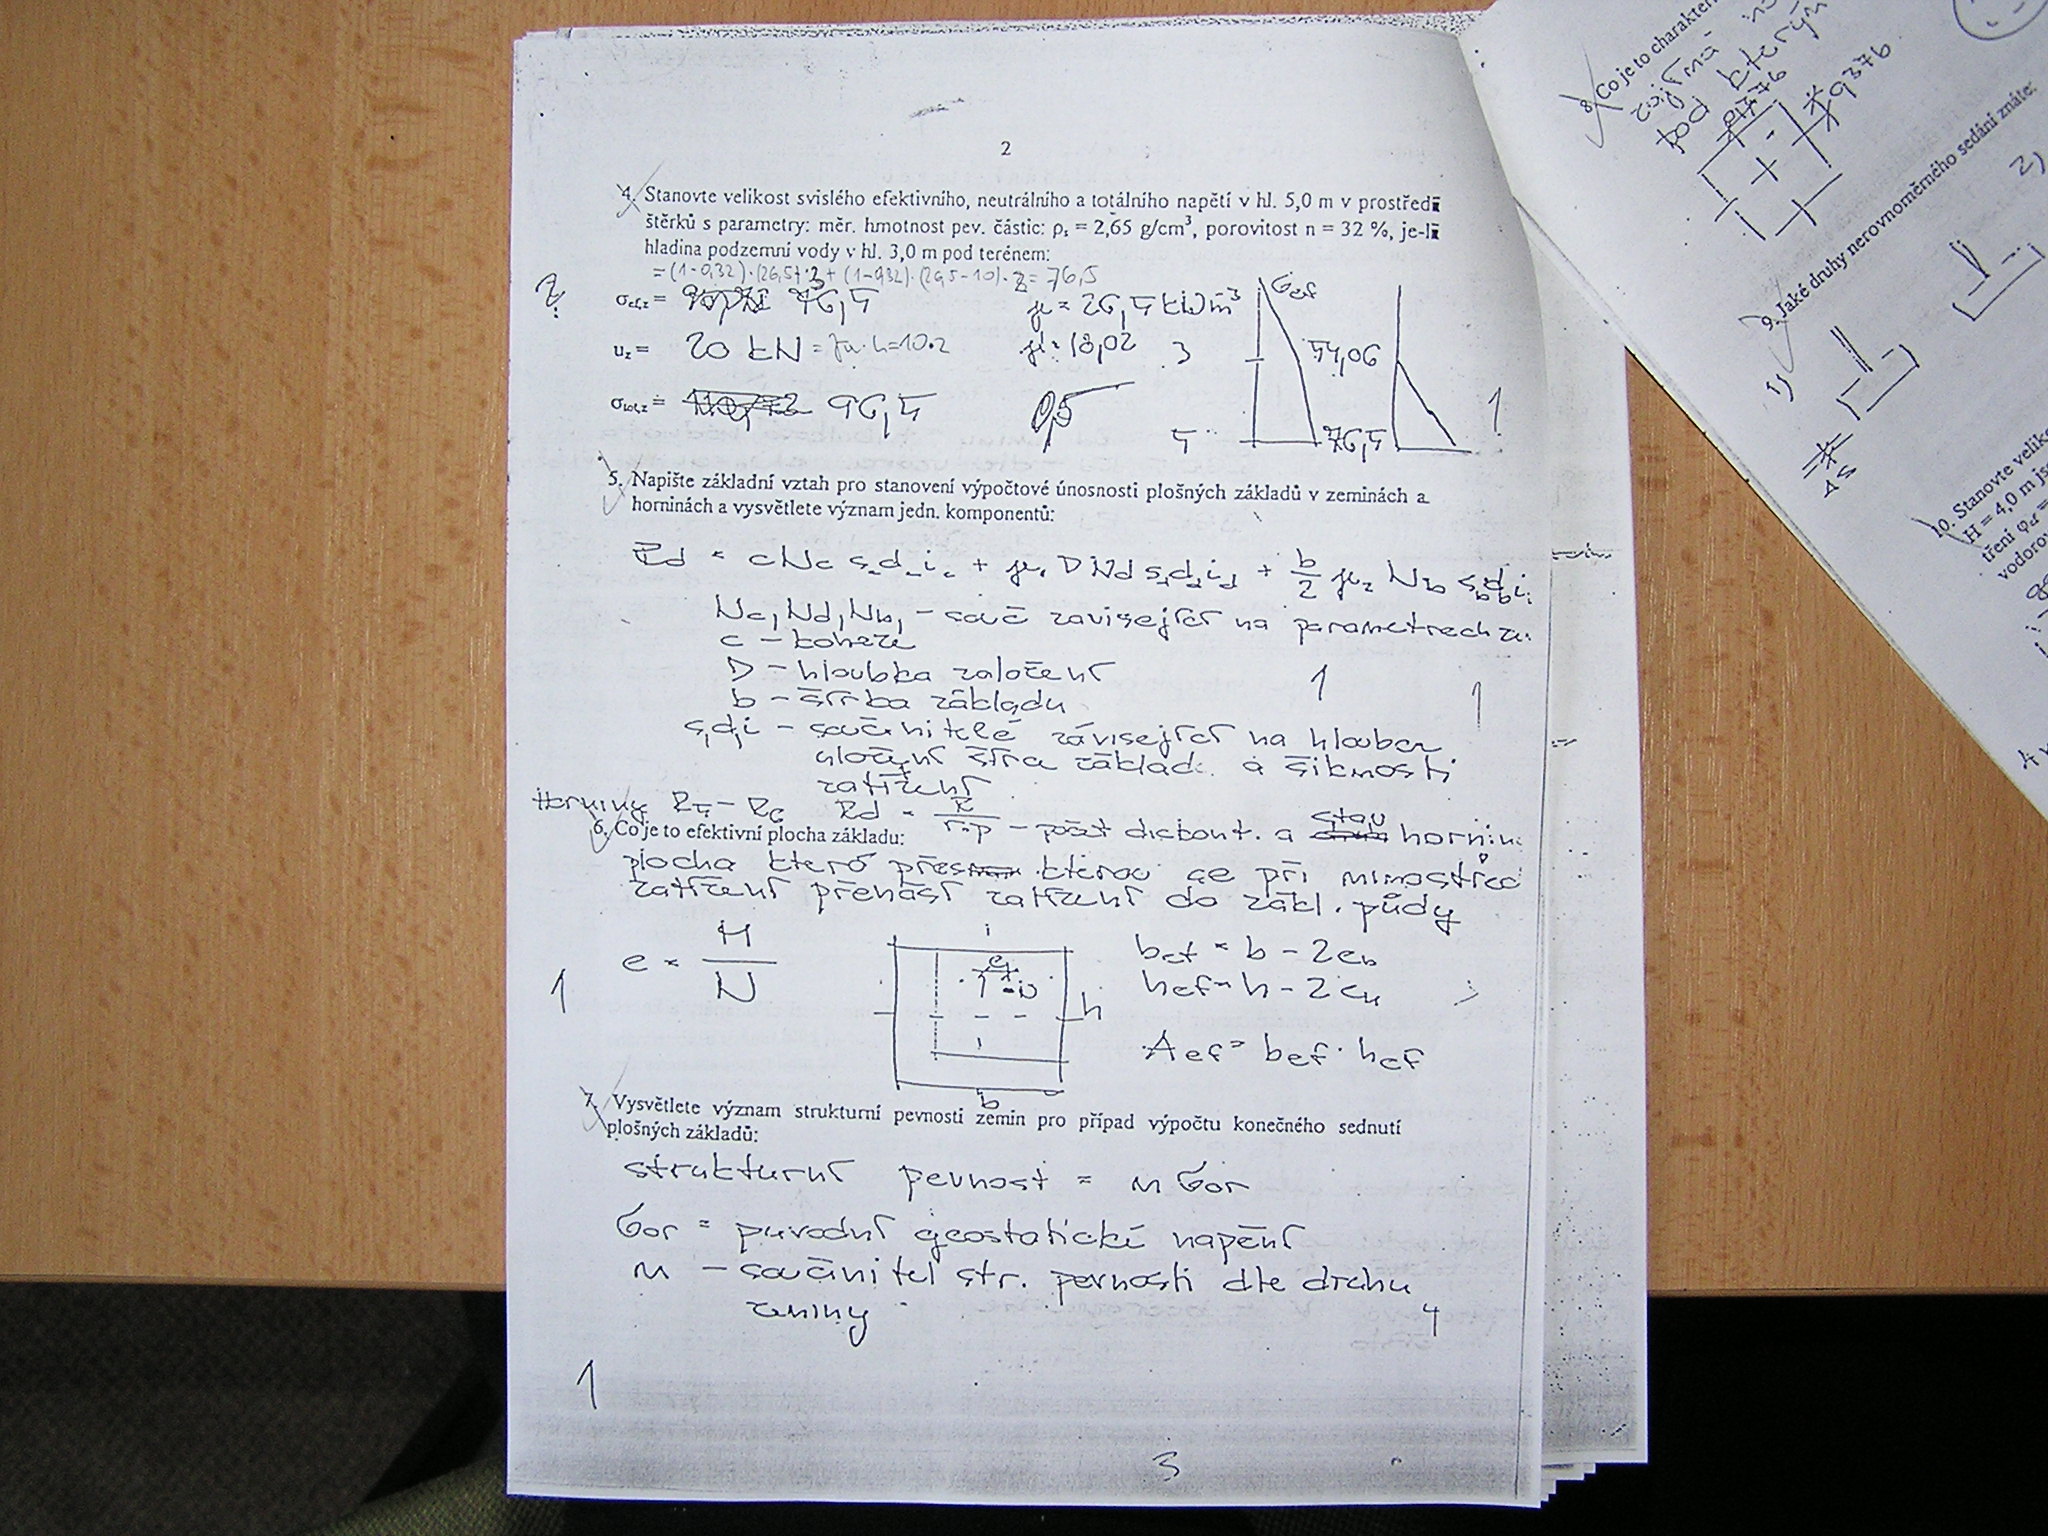 2
4. Stanovte velikost svislého efektivního, neutrálního a totálního napětí v hl. 5,0 m v prostředí
štěrků s parametry: měr. hmotnost pev. částic: ρs = 2,65 g/cm³, porovitost n = 32 %, je-li
hladina podzemní vody v hl. 3,0 m pod terénem:
= (1-0,32)·(26,5)·3 + (1-0,32)·(26,5-10)·2 = 76,5
σef,z = 76,5
γ = 26,5 kN m³
σef
uz = 20 kN = γw·h = 10·2
γ = 18,02
3
54,06
σtot,z = 96,5
5
76,5
1
5. Napište základní vztah pro stanovení výpočtové únosnosti plošných základů v zeminách a
horninách a vysvětlete význam jedn. komponentů:
Rd = cNc sc dc ic + γ1 D Nd sd dd id + b/2 γ2 Nb sb db ib
Nc, Nd, Nb, - souč zavisející na parametrech ze
c - koheze
D - hloubka založení
1
b - šířka základu
1
s,d,i - součinitelé závisející na hloubce
uložení šířce základ. a šikmosti
zatížení
Horniny R5 - R6 Rd = R/r·p - počet diskont. a stavu hornin
6. Co je to efektivní plocha základu:
plocha přes kterou se při mimostřed
zatížení přenáší zatížení do zákl. půdy
e = M/N
bef = b - 2eb
hef = h - 2eh
h
1
Aef = bef · hef
b
7. Vysvětlete význam strukturní pevnosti zemin pro případ výpočtu konečného sednutí
plošných základů:
strukturní pevnost = m σor
σor = puvodní geostatické napění
m - součinitel str. pevnosti dle druhu
zeminy
4
1
3
8. Co je to charakter
zejfmá
pod kterým
0,376
9. Jaké druhy nerovnoměrného sedání znáte:
1)
2)
ΔS
10. Stanovte veliko
H = 4,0 m js
tření φef =
vodoro